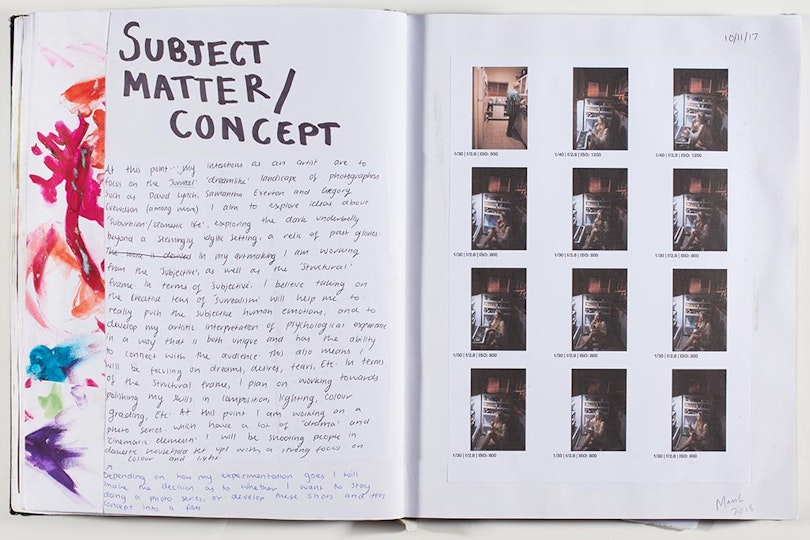 SUBJECT
MATTER/
CONCEPT
At this point... my intentions as an artist are to
focus on the 'surreal' 'dreamlike' landscape of photographers
such as David Lynch, Samantha Everton and Gregory
Crewdson (among more). I aim to explore ideas about
'suburbian'/domestic life', exploring the dark underbelly
beyond a seemingly idyllic setting, a relic of past glories.
The work is divided In my artmaking I am working
from the 'Subjective', as well as the 'Structural'
frame. In terms of Subjective, I believe taking on
the creative lens of 'Surrealism' will help me to
really push the subjective human emotions, and to
develop my artistic interpretation of psychological experience
in a way that is both unique and has the ability
to connect with the audience this also means I
will be focusing on dreams, desires, fears, Etc. In terms
of the Structural frame, I plan on working towards
polishing my skills in composition, lighting, colour
grading, Etc. At this point I am working on a
photo series which have a lot of 'drama' and
'cinematic elements' I will be shooting people in
domestic household set ups with a strong focus on
colour and light.
Depending on how my experimentation goes I will
make the decision as to whether I want to stay
doing a photo series, or develop these shots and this
concept into a film
10/11/17
1/30 | f/2.8 | ISO: 500
1/40 | f/2.8 | ISO: 1250
1/40 | f/2.8 | ISO: 1250
1/30 | f/2.8 | ISO: 800
1/30 | f/2.8 | ISO: 800
1/30 | f/2.8 | ISO: 800
1/30 | f/2.8 | ISO: 800
1/30 | f/2.8 | ISO: 800
1/30 | f/2.8 | ISO: 800
1/30 | f/2.8 | ISO: 800
1/30 | f/2.8 | ISO: 800
1/30 | f/2.8 | ISO: 800
2018